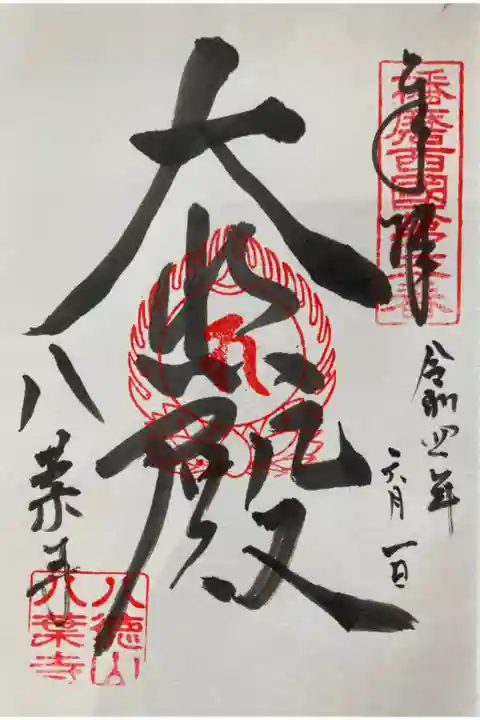 奉拝
播磨西國第
令和四年
六月一日
大悲殿
八葉寺
八徳山
八葉寺